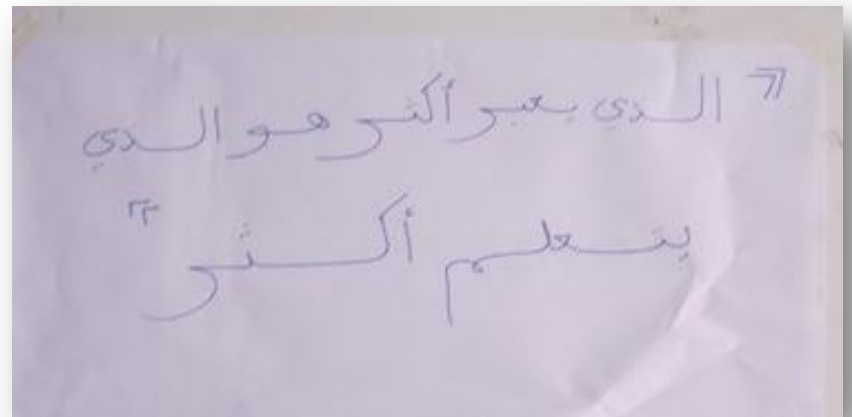 " الذي يعبر أكثر هو الذي
يتعلم أكثر "